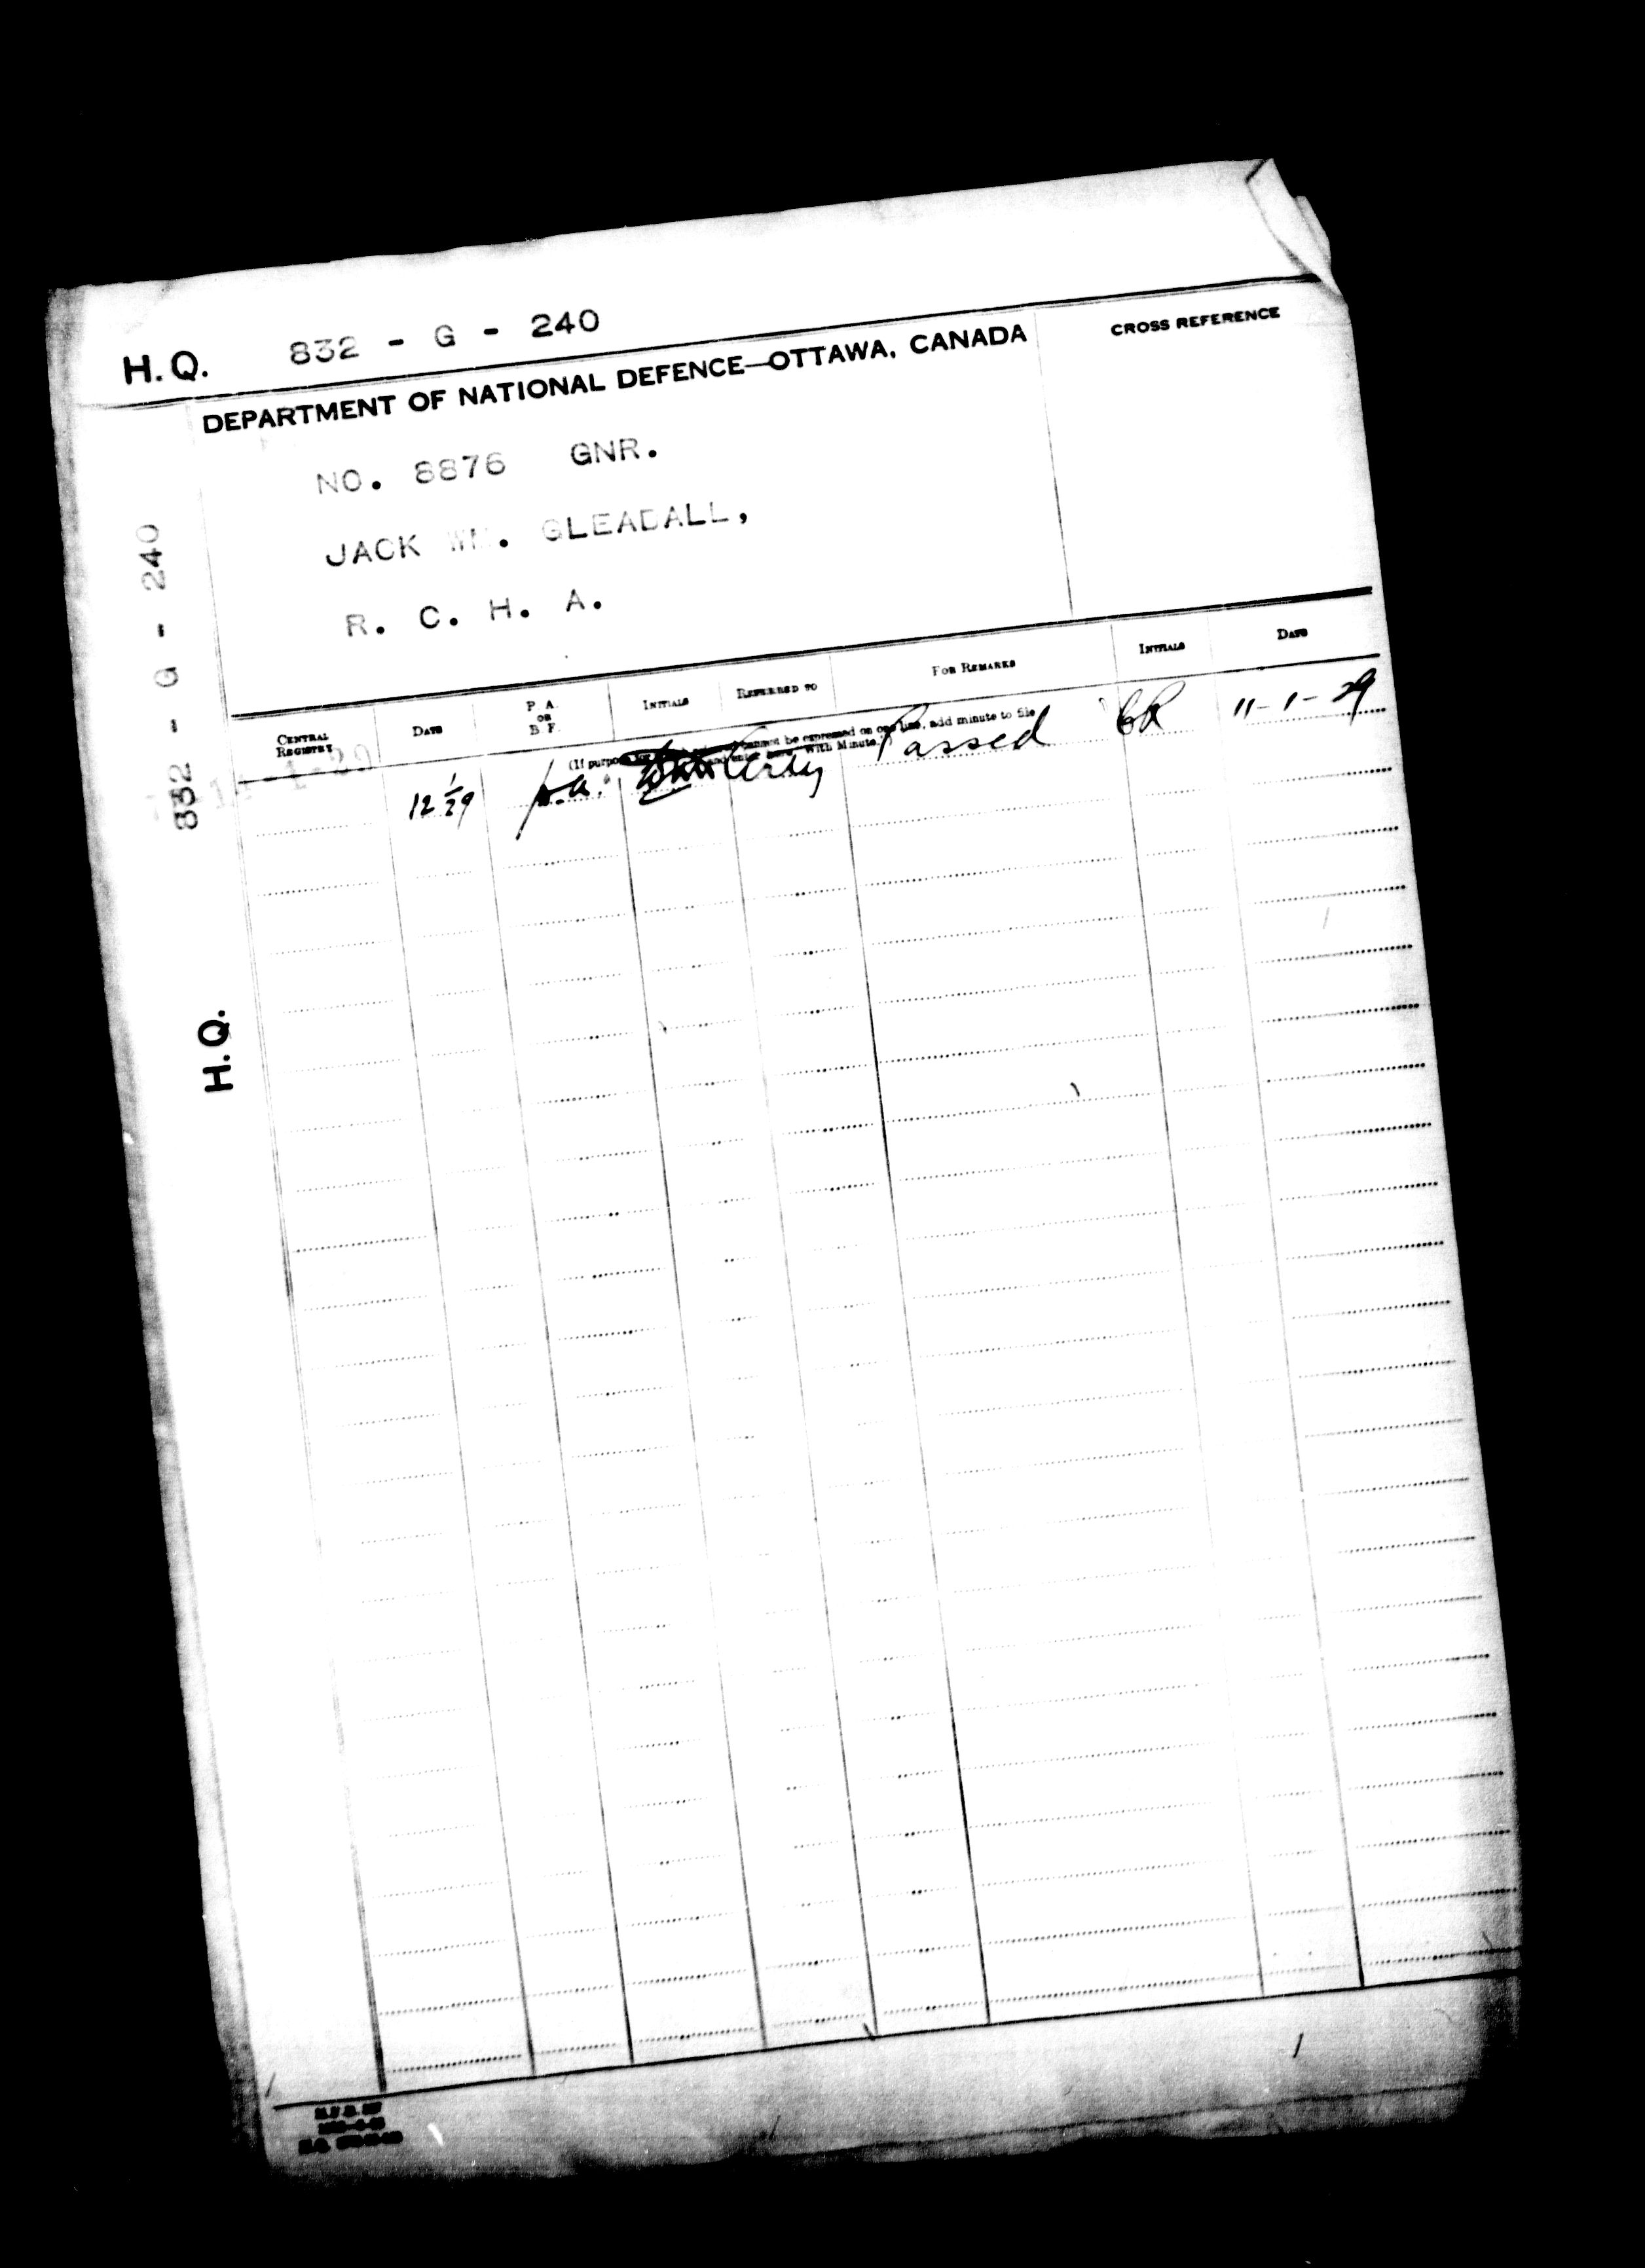 H.Q. 832 - G - 240
DEPARTMENT OF NATIONAL DEFENCE—OTTAWA, CANADA
CROSS REFERENCE
NO. 8876 GNR.
JACK WM. GLEADALL,
R. C. H. A.
832 - G - 240
H.Q.
CENTRAL REGISTRY
DATE
P. A. OR B F.
INITIALS
REFERRED TO
FOR REMARKS
INITIALS
DATE
(If purpose cannot be expressed on one line, add minute to file
and enter here, With Minute.)
12 1/29 p.a. Passed CR 11-1-29